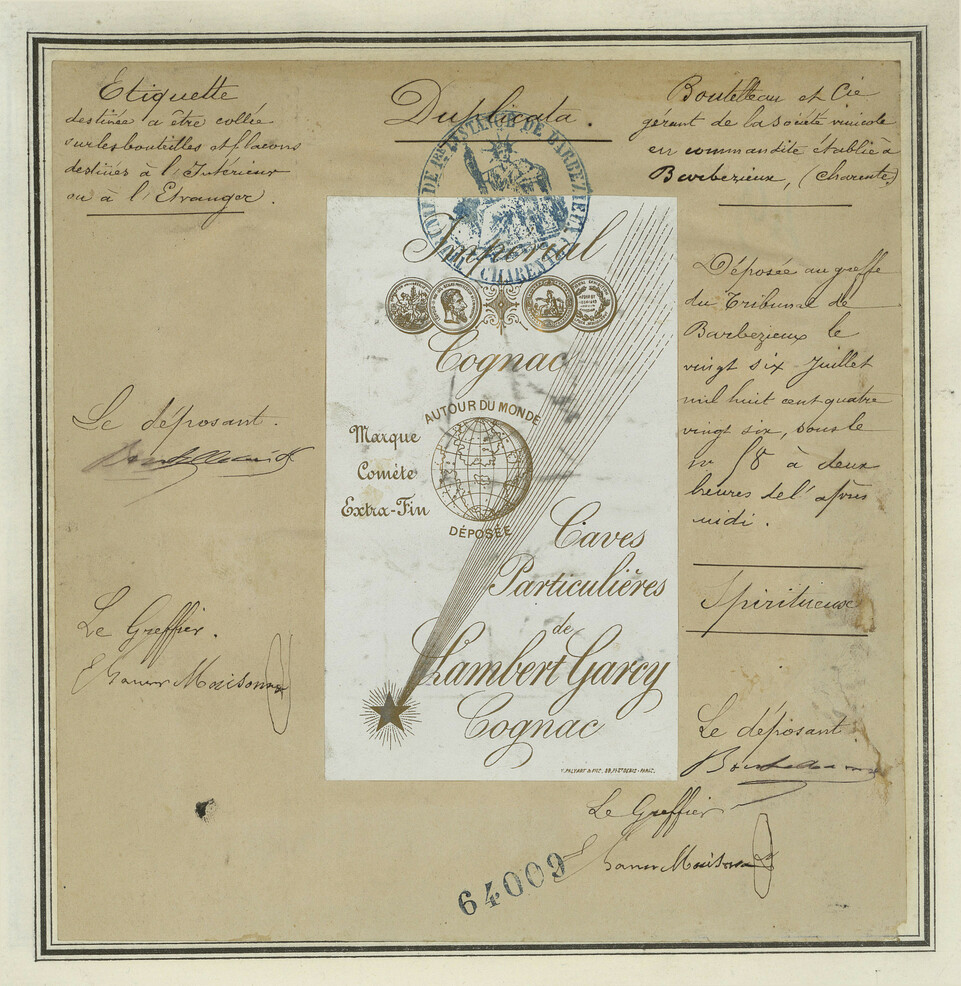 Etiquette
destinée a être collée
sur les bouteilles et flacons
destinés à l'Intérieur
ou à l'Etranger.
Duplicata.
Boutelleau et Cie
gérant de la Société vinicole
en commandite établie à
Barbezieux, (Charente)
DE 1RE INSTANCE DE BARBEZIEUX
CHARENTE
Impérial
Cognac
AUTOUR DU MONDE
Marque
Comète
Extra-Fin
DÉPOSÉE
Caves
Particulières
de
Lambert Garcy
Cognac
Déposée au greffe
du Tribunal de
Barbezieux le
vingt six Juillet
mil huit cent quatre
vingt six, sous le
n° 58 à deux
heures de l'après
midi.
Spiritueux
Le déposant.
Le Greffier.
Le déposant
Le Greffier
64009